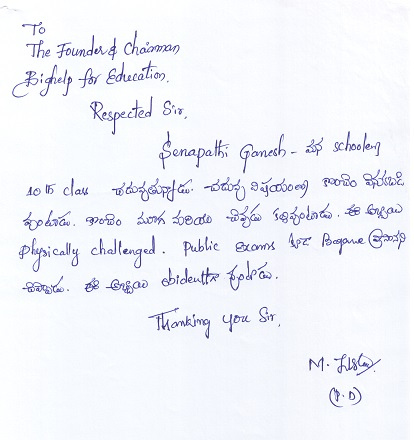 To
The Founder & Chairman
Bighelp for Education.
Respected Sir,
Senapathi Ganesh - మన schoolలో
10th class చదువుతున్నాడు. చదువు విషయంలో కొంచెం వెనుకబడి
వుంటాడు. కొంచెం మూగ మరియు చెవుడు కల్గివుంటాడు. ఈ అబ్బాయి
Physically challenged. Public Exams కూడ Bagane వ్రాసానని
చెప్పాడు. ఈ అబ్బాయి obidentగా వుంటాడు.
Thanking you Sir,
M.
(P.D)